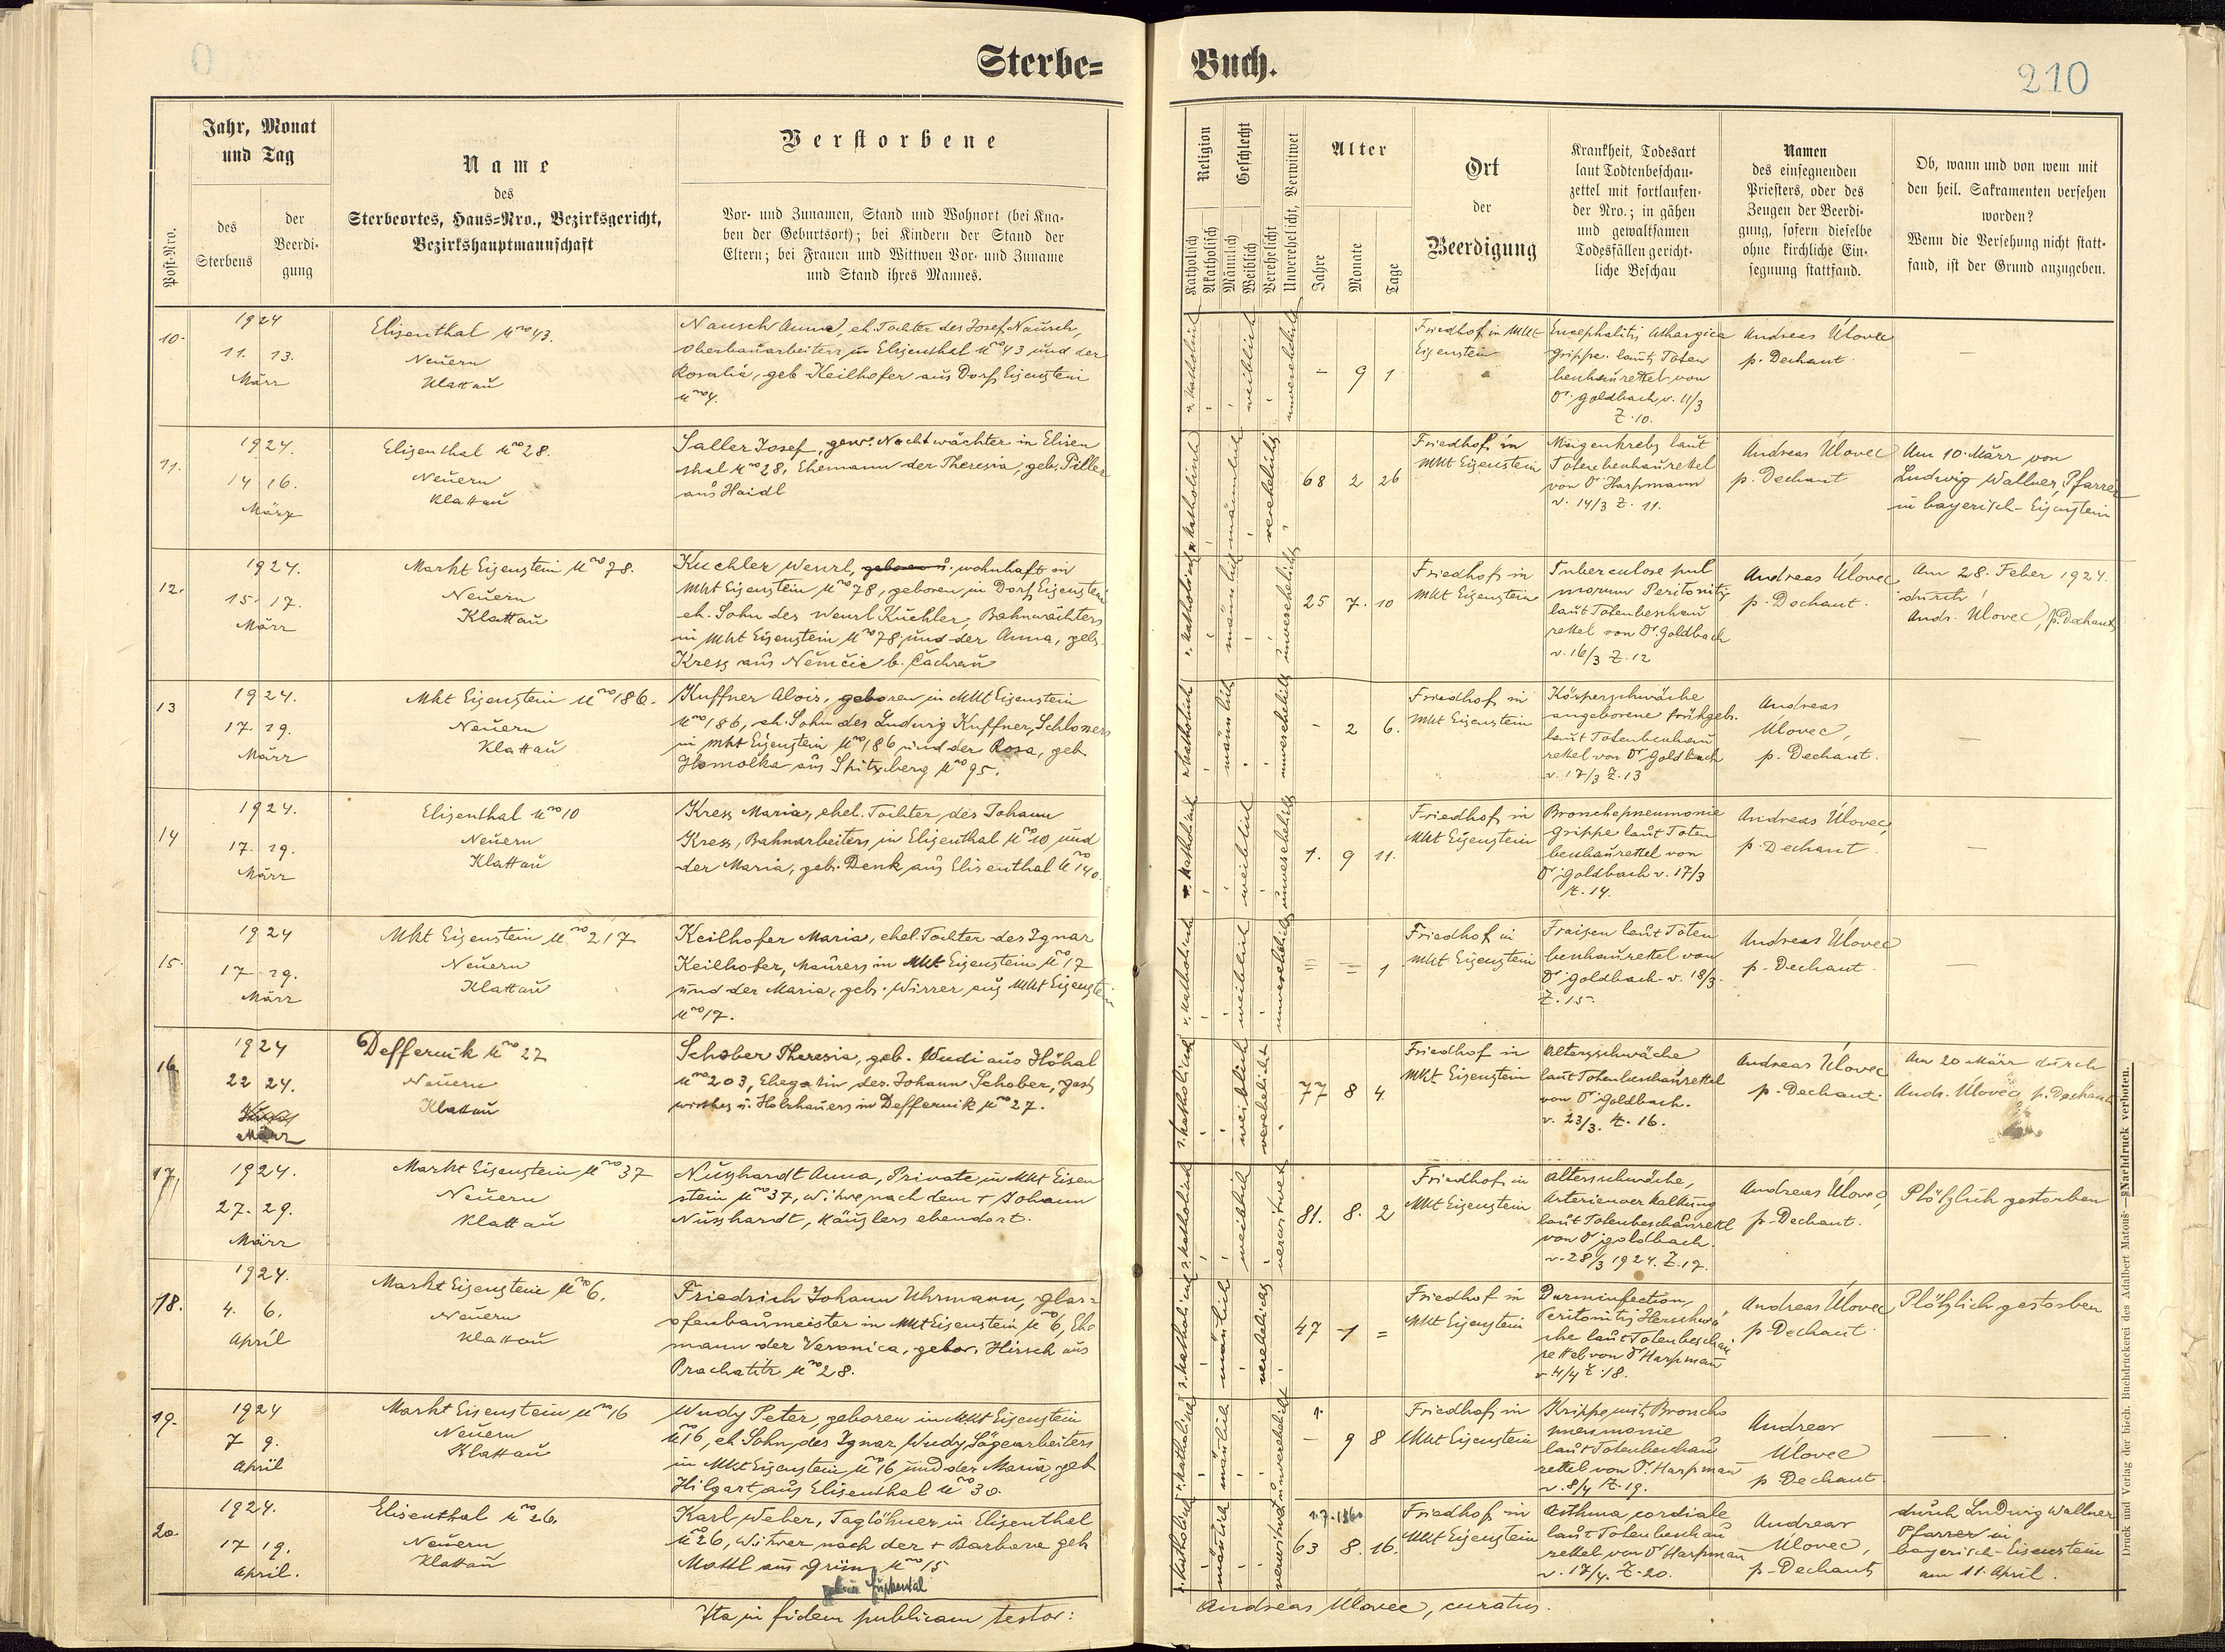 Sterbe=
Buch.
210
Jahr, Monat
und Tag
Name
des
Sterbeortes, Haus=Nro., Bezirksgericht,
Bezirkshauptmannschaft
Verstorbene
Post=Nro.
des
Sterbens
der
Beerdi-
gung
Vor- und Zunamen, Stand und Wohnort (bei Kna-
ben der Geburtsort); bei Kindern der Stand der
Eltern; bei Frauen und Wittwen Vor- und Zuname
und Stand ihres Mannes.
Religion
Geschlecht
Katholisch
Akatholisch
Männlich
Weiblich
Verehelicht
Unverehelicht, Verwitwet
Alter
Jahre
Monate
Tage
Ort
der
Beerdigung
Krankheit, Todesart
laut Todtenbeschau-
zettel mit fortlaufen-
der Nro.; in gähen
und gewaltsamen
Todesfällen gericht-
liche Beschau
Namen
des einsegnenden
Priesters, oder des
Zeugen der Beerdi-
gung, sofern dieselbe
ohne kirchliche Ein-
segnung stattfand.
Ob, wann und von wem mit
den heil. Sakramenten versehen
worden?
Wenn die Versehung nicht statt-
fand, ist der Grund anzugeben.
10.
1924
11. 13.
März
Elisenthal Nro 43.
Neuern
Klattau
Nausch Anna, eh. Tochter des Josef Nausch,
Oberbauarbeiters in Elisenthal Nro 43 und der
Rosalia, geb. Keilhofer aus Dorf Eisenstein
Nro 4.
r. katholisch
weiblich
unverehelicht
- 9 1
Friedhof in Mkt
Eisenstein
Encephalitis lethargica
Grippe laut Toten
beschauzettel von
Dr. Goldbach v. 11/3
Z. 10.
Andreas Úlovec
p. Dechant.
—
11.
1924.
14 16.
März
Elisenthal Nro 28.
Neuern
Klattau
Saller Josef, gew. Nachtwächter in Elisen
thal Nro 28, Ehemann der Theresia, geb. Piller
aus Haidl
r. katholisch
männlich
verehelicht
68 2 26
Friedhof in
Mkt Eisenstein
Magenkrebs laut
Totenbeschauzettel
von Dr. Harpmann
v. 14/3 Z. 11.
Andreas Úlovec
p. Dechant
Am 10. März von
Ludwig Wallner, Pfarrer
in bayerisch-Eisenstein
12.
1924.
15. 17.
März
Markt Eisenstein Nro 78.
Neuern
Klattau
Kuchler Wenzl, geboren u. wohnhaft in
Mkt Eisenstein Nro 78, geboren in Dorf Eisenstein
eh. Sohn des Wenzl Kuchler, Bahnwächters
in Mkt Eisenstein Nro 78 und der Anna, geb.
Kress aus Němčic b. Čachrau
r. katholisch
männlich
unverehelicht
25 7. 10
Friedhof in
Mkt Eisenstein
Tuberculose pul
monum Peritonitis
laut Totenbeschau
zettel von Dr. Goldbach
v. 16/3 Z. 12
Andreas Úlovec
p. Dechant.
Am 28. Feber 1924.
durch
Andr. Úlovec, p. Dechant
13
1924.
17. 19.
März
Mkt Eisenstein Nro 186.
Neuern
Klattau
Kuffner Alois, geboren in Mkt Eisenstein
Nro 186, eh. Sohn des Ludwig Kuffner, Schlossers
in Mkt Eisenstein Nro 186 und der Rosa, geb.
Homolka aus Spitzberg Nro 95.
r. katholisch
männlich
unverehelicht
- 2 6.
Friedhof in
Mkt Eisenstein
Körperschwäche
angeborene frühgeb.
laut Totenbeschau
zettel von Dr. Goldbach
v. 17/3 Z. 13
Andreas
Úlovec,
p. Dechant.
—
14
1924.
17. 19.
März
Elisenthal Nro 10
Neuern
Klattau
Kress Maria, ehel. Tochter des Johann
Kress, Bahnarbeiters in Elisenthal Nro 10 und
der Maria, geb. Denk aus Elisenthal Nro 140.
r. katholisch
weiblich
unverehelicht
1. 9 11.
Friedhof in
Mkt Eisenstein
Bronchopneumonie
Grippe laut Toten
beschauzettel von
Dr. Goldbach v. 17/3
Z. 14.
Andreas Úlovec,
p. Dechant.
—
15.
1924
17 19.
März
Mkt Eisenstein Nro 217
Neuern
Klattau
Keilhofer Maria, ehel. Tochter des Ignaz
Keilhofer, Maurers in Mkt Eisenstein Nro 17
und der Maria, geb. Wirrer aus Mkt Eisenstein
Nro 17.
r. katholisch
weiblich
unverehelicht
= = 1
Friedhof in
Mkt Eisenstein
Fraisen laut Toten
beschauzettel von
Dr. Goldbach v. 18/3.
Z. 15.
Andreas Úlovec
p. Dechant.
—
16
1924
22 24.
März
Deffernik Nro 27
Neuern
Klattau
Schober Theresia, geb. Wudi aus Höhal
Nro 203, Ehegattin des Johann Schober, Gast
wirthes u. Holzhauers in Deffernik Nro 27.
r. katholisch
weiblich
verehelicht
77 8 4.
Friedhof in
Mkt Eisenstein
Altersschwäche
laut Totenbeschauzettel
von Dr. Goldbach.
v. 23/3. Z. 16.
Andreas Úlovec
p. Dechant.
Am 20 März durch
Andr. Úlovec p. Dechant
17
1924.
27. 29.
März
Markt Eisenstein Nro 37
Neuern
Klattau
Nusshardt Anna, Private in Mkt Eisen
stein Nro 37, Witwe nach dem + Johann
Nusshardt, Häuslers ebendort.
r. katholisch
weiblich
verwitwet
81. 8. 2
Friedhof in
Mkt Eisenstein
Altersschwäche,
Arterienverkalkung
laut Totenbeschauzettl
von Dr. Goldbach.
v. 28/3 1924. Z. 17.
Andreas Úlovec,
p. Dechant.
Plötzlich gestorben
18.
1924.
4. 6.
April
Markt Eisenstein Nro 6.
Neuern
Klattau
Friedrich Johann Uhrmann, Glas=
ofenbaumeister in Mkt Eisenstein Nro 6, Ehe
mann der Veronica, gebor. Hirsch aus
Prachatitz Nro 28.
r. katholisch
männlich
verehelicht
47 1 =
Friedhof in
Mkt Eisenstein
Darminfection,
Peritonitis Herzschwä
che laut Totenbeschau
zettel von Dr. Harpmann
v. 4/4 Z. 18.
Andreas Úlovec
p. Dechant.
Plötzlich gestorben
19.
1924
7 9.
April
Markt Eisenstein Nro 16
Neuern
Klattau
Wudy Peter, geboren in Mkt Eisenstein
Nro 16, eh. Sohn des Ignaz Wudy Sägearbeiters
in Mkt Eisenstein Nro 16 und der Maria, geb
Hilgart aus Elisenthal Nro 30.
r. katholisch
männlich
unverehelicht
- 9 8
Friedhof in
Mkt Eisenstein
Krippe mit Broncho
pneumonie
laut Totenbeschau
zettel von Dr. Harpmann
v. 8/4 Z. 19.
Andreas
Úlovec
p. Dechant.
—
20.
1924.
17 19.
April.
Elisenthal Nro 26.
Neuern
Klattau
Karl Weber, Taglöhner in Elisenthal
Nro 26, Witwer nach der + Barbara geb
Mottl aus Grün Nro 15
r. katholisch
männlich
verwitwet
63 8. 16.
Friedhof in
Mkt Eisenstein
Asthma cordiale
laut Totenbeschau
zettel von Dr. Harpmann
v. 17/4. Z. 20.
Andreas
Úlovec,
p. Dechant
durch Ludwig Wallner
Pfarrer in
bayerisch-Eisenstein
am 11. April.
Ita in fidem publicam testor:
Andreas Úlovec, curatus.
Druck und Verlag der bisch. Buchdruckerei des Adalbert Matouš — Nachdruck verboten.